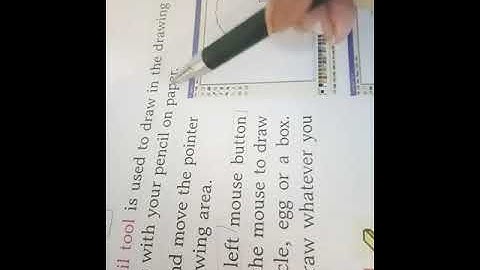 il tool is used to draw in the drawing
with your pencil on paper.
nd move the pointer
wing area.
left mouse button
he mouse to draw
cle, egg or a box.
raw whatever you